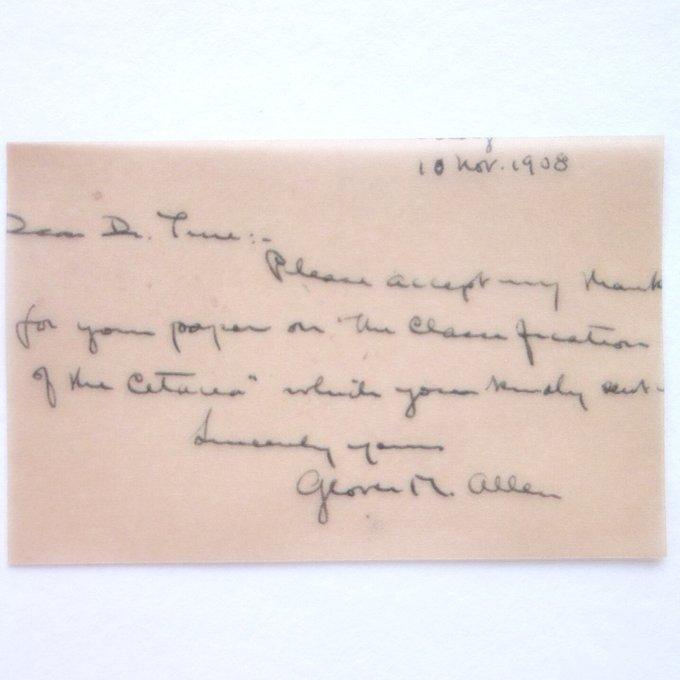 10 Nov. 1908
Dear Dr. True:-
Please accept my thank
for your paper on "the Classification
of the Cetacea" which you kindly sent
Sincerely yours
Glover M. Allen